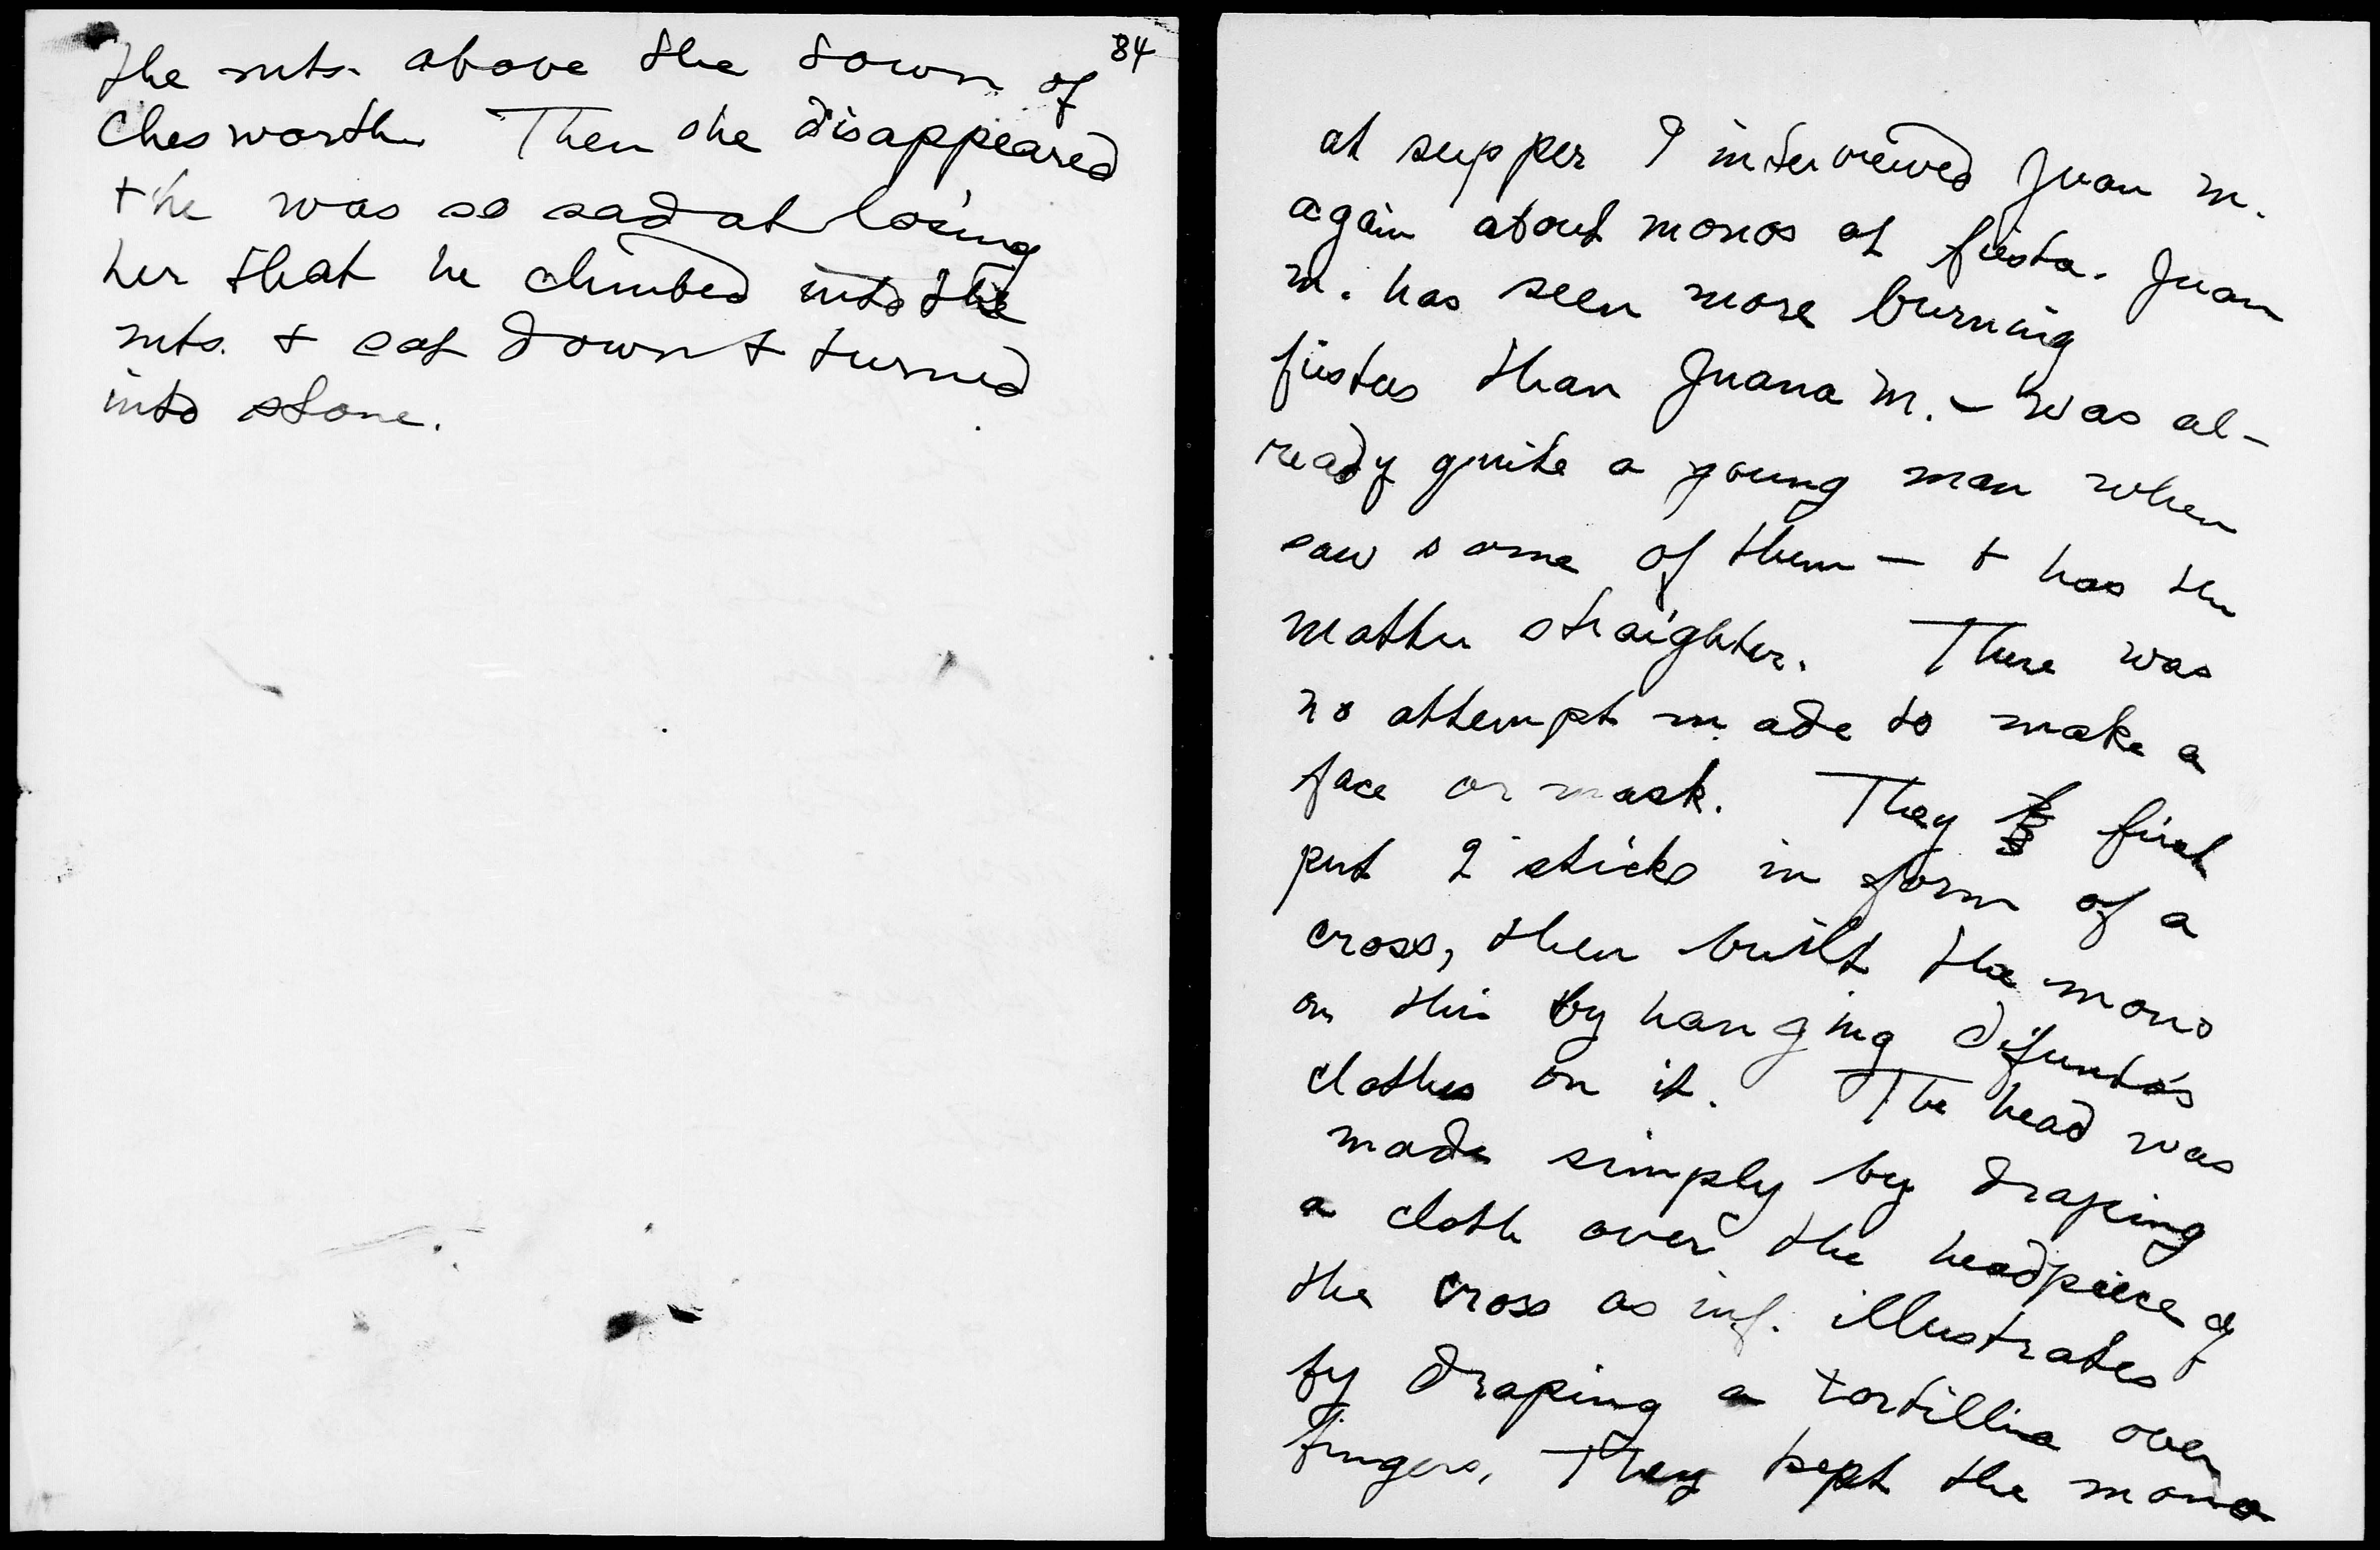 84
the mts. above the town of
Chesworth. Then she disappeared
+ he was so sad at losing
her that he climbed into the
mts. + sat down + turned
into stone.
at supper I interviewed Juan M.
again about monos at fiesta. Juan
M. has seen more burning
fiestas than Juana M. – was al-
ready quite a young man when
saw some of them – + has the
matter straighter. There was
no attempt made to make a
face or mask. They first
put 2 sticks in form of a
cross, then built the mono
on this by hanging difunto's
clothes on it. The head was
made simply by draping
a cloth over the headpiece of
the cross as inf. illustrates
by draping a tortilla over
fingers. They kept the mono